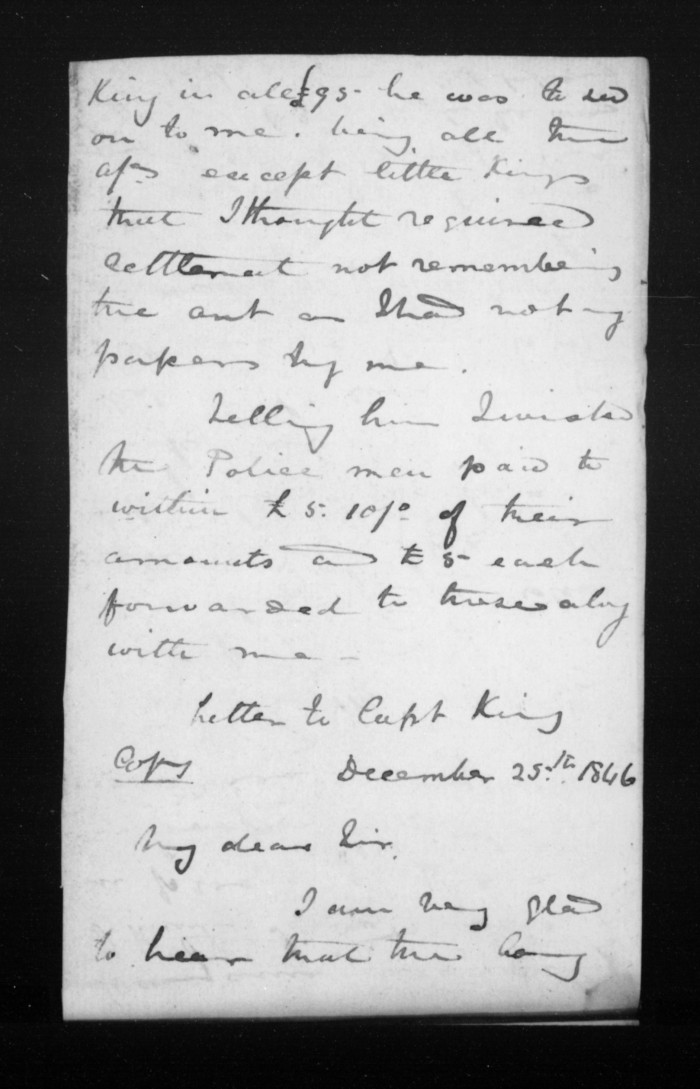 King in all £95- he was to send
on to me. being all the
a/cs except little Kings
that I thought required
settlement not remembering
the amt as I had not my
papers by me.
telling him I wished
the Police men paid to
within £5.10/- of their
amounts and £5 each
forwarded to those along
with me -
Letter to Capt King
Copy December 25th 1846
My dear Sir,
I am very glad
to hear that the